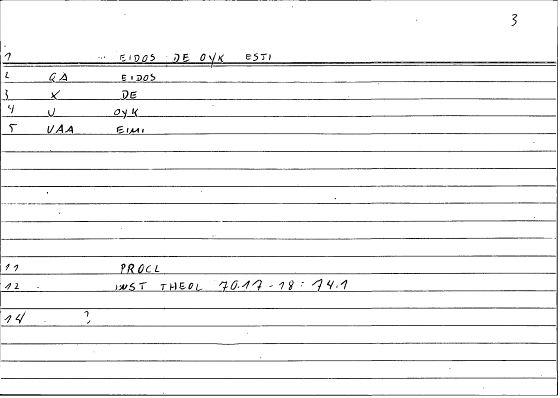 3
1 ... EIDOS DE OYK ESTI
2 QA EIDOS
3 X DE
4 U OYK
5 VAA EIMI
11 PROCL
12 INST THEOL 70.17-18: 74.1
14 ?